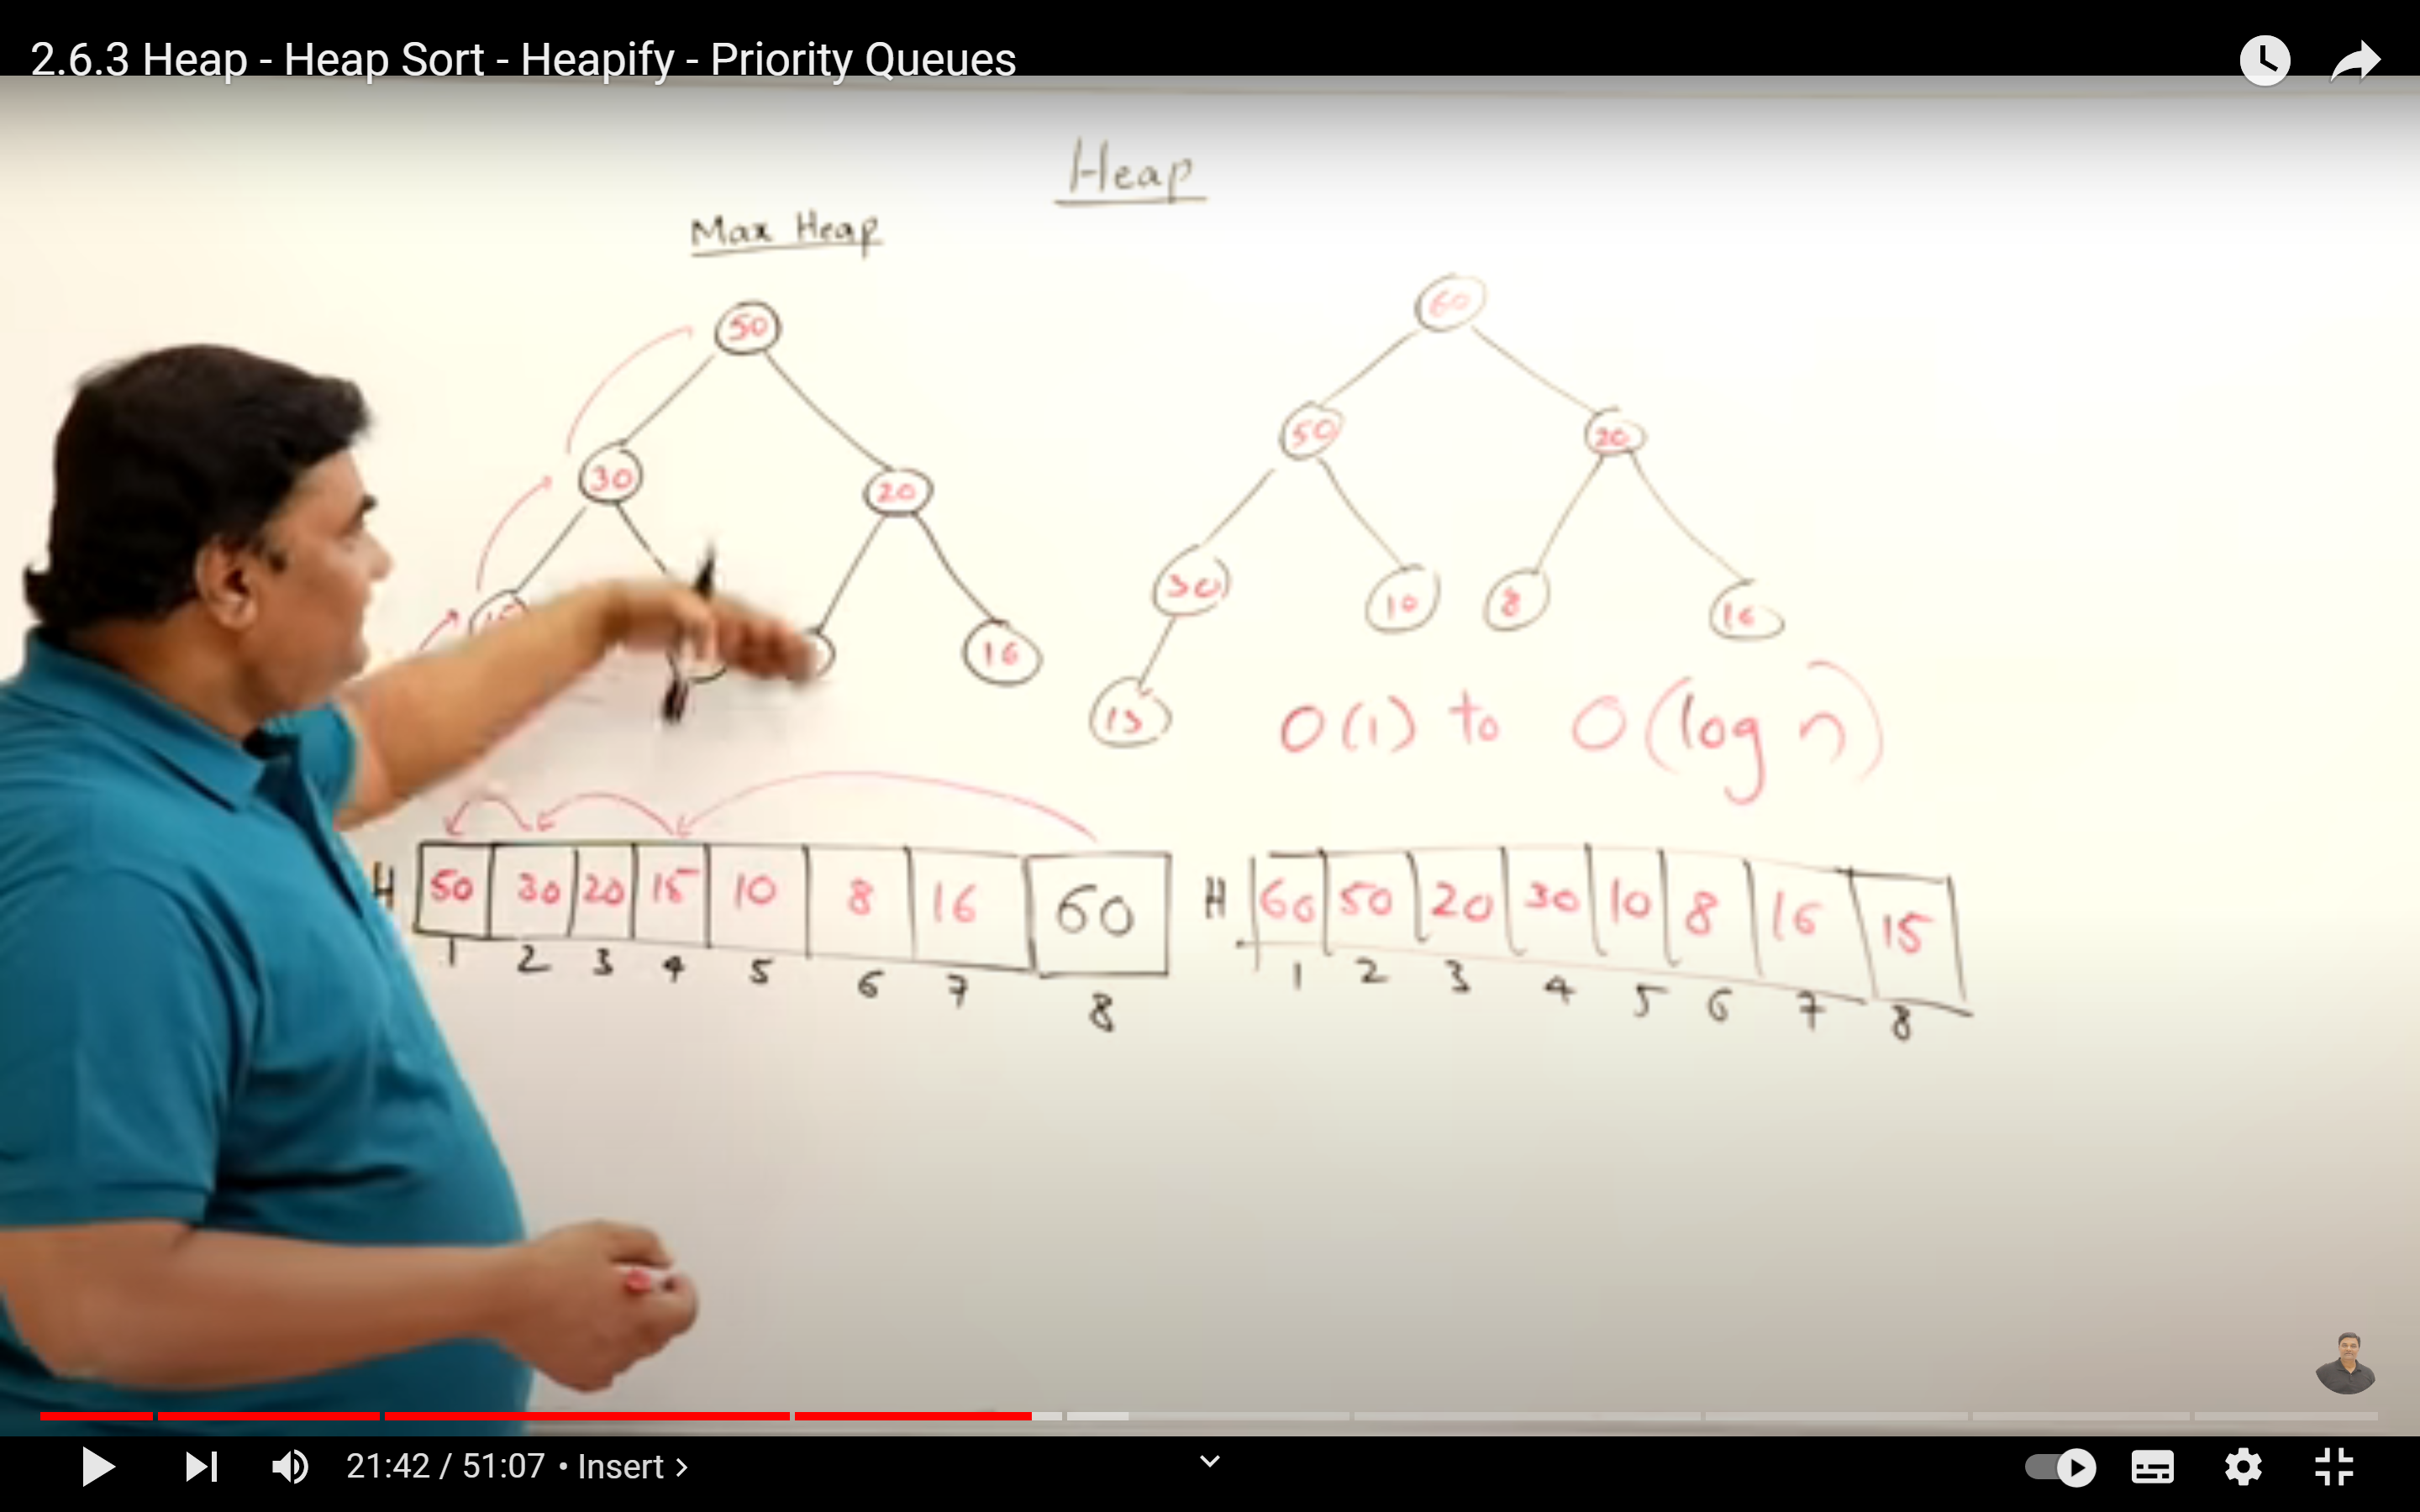 2.6.3 Heap - Heap Sort - Heapify - Priority Queues
Heap
Max Heap
50
30 20
16
60
50 20
30 10 8 16
15
O(1) to O(log n)
H 50 30 20 15 10 8 16 60
1 2 3 4 5 6 7 8
H 60 50 20 30 10 8 16 15
1 2 3 4 5 6 7 8
21:42 / 51:07 • Insert ›